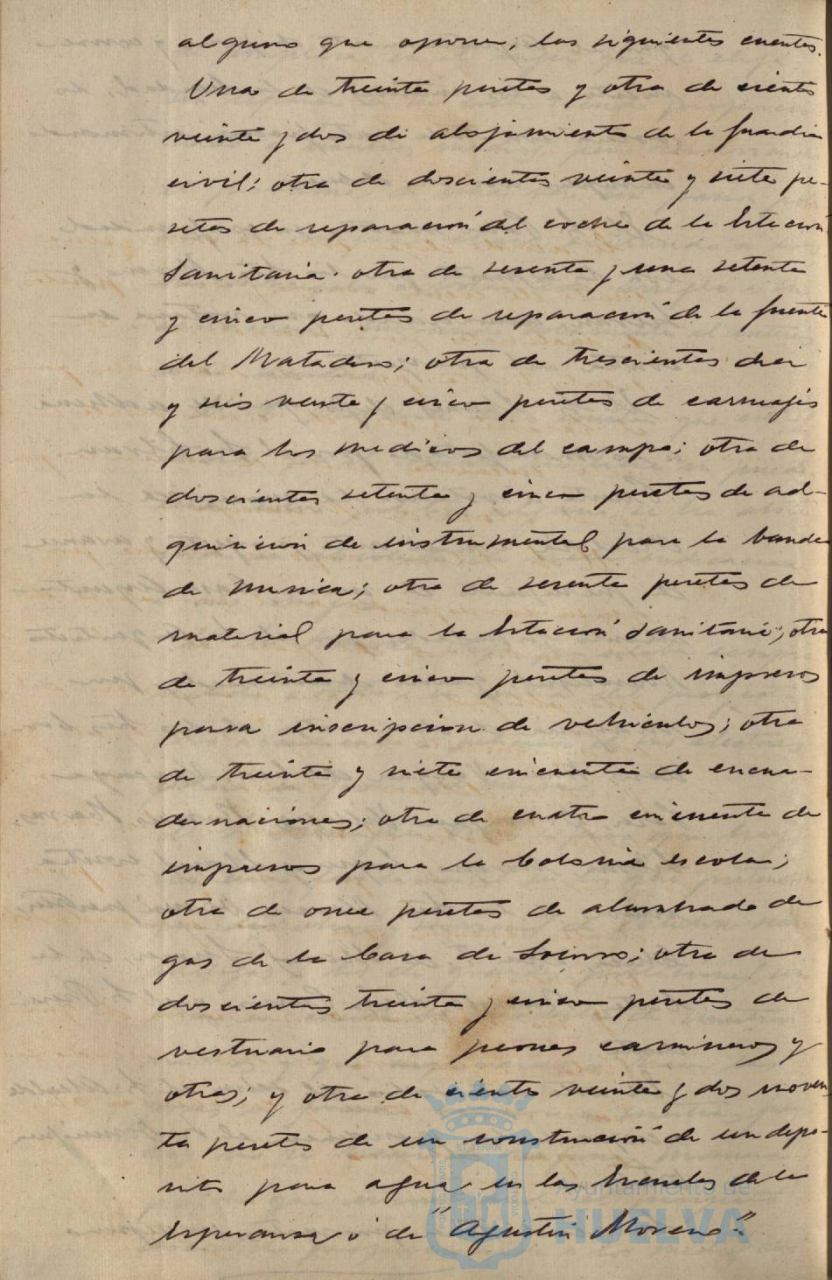 alguno que oponer, las siguientes cuentas.
Una de treinta pesetas y otra de ciento
veinte y dos de alojamiento de la guardia
civil; otra de doscientas veinte y siete pe-
setas de reparación del coche de la Estación
Sanitaria. otra de sesenta y una setenta
y cinco pesetas de reparación de la fuente
del Matadero; otra de trescientas diez
y seis veinte y cinco pesetas de carruajes
para los medicos del campo; otra de
doscientas setenta y cinco pesetas de ad-
quisicion de instrumental para la banda
de musica; otra de sesenta pesetas de
material para la Estación Sanitaria; otra
de treinta y cinco pesetas de impresos
para inscripcion de vehiculos; otra
de treinta y siete cincuenta de encua-
dernaciones; otra de cuatro cincuenta de
impresos para la Colonia escolar;
otra de once pesetas de alumbrado de
gas de la Casa de Socorro; otra de
doscientas treinta y cinco pesetas de
vestuario para peones camineros y
otras; y otra de ciento veinte y dos noven
ta pesetas de un construcción de un depo-
sito para agua en las Escuelas de la
Esperanza ó de "Agustín Moreno"
Ayuntamiento de
HUELVA